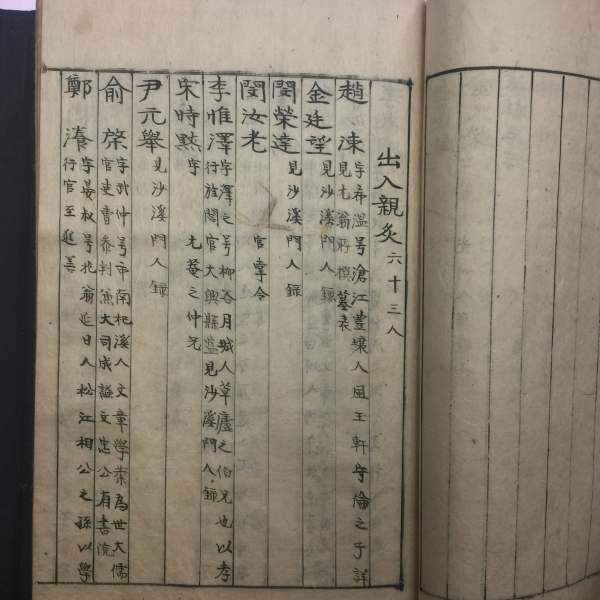 出入親炙六十三人
趙涑 字希溫号滄江豊壤人風玉軒守倫之子詳
見尤翁所撰墓表
金廷望 見沙溪門人錄
閔榮達 見沙溪門人錄
閔汝老 官
令
李惟澤 字澤之号柳谷月城人草廬之伯兄也以孝
行旌閭官大興縣監見沙溪門人錄
宋時㷍 字 尤菴之仲兄
尹元舉 見沙溪門人錄
俞棨 字武仲号市南杞溪人文章學業為世大儒
官吏曹參判兼大司成謚文忠公有書院
鄭瀁 字晏叔号抱翁延日人松江相公之孫以學
行官至進善